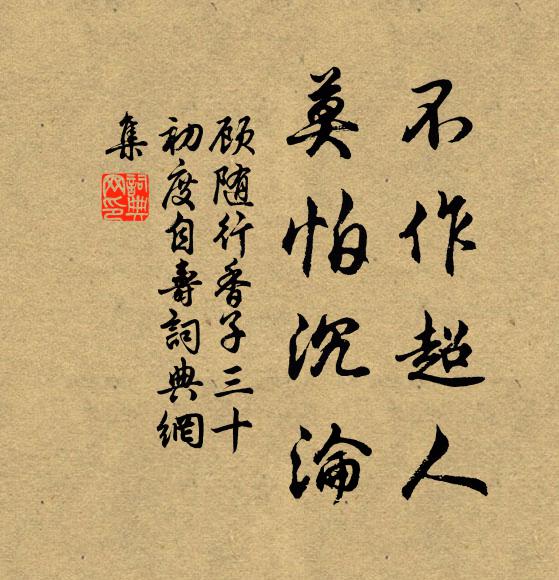 不作超人
莫怕沉淪
顾随行香子三十
初度自壽詞典網
集
詞典網印